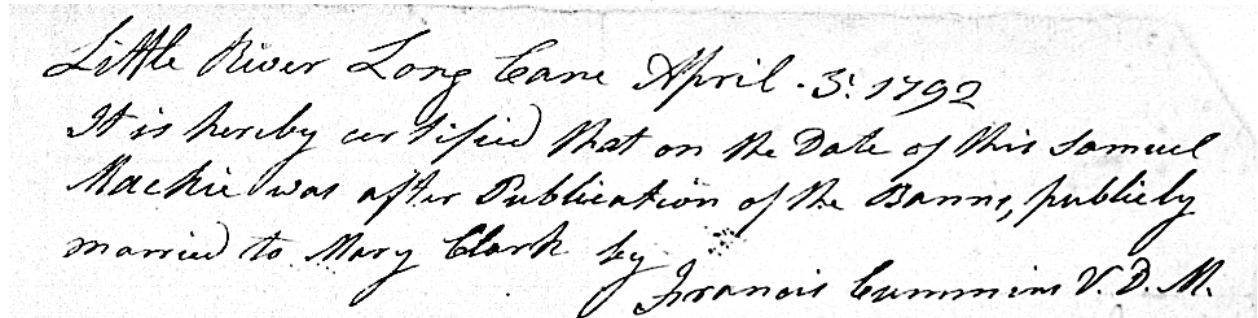 Little River Long Cane April. 3: 1792
It is hereby certified that on the Date of this Samuel
Mackie was after Publication of the Banns, publicly
married to Mary Clark by
Francis Cummins V. D. M.